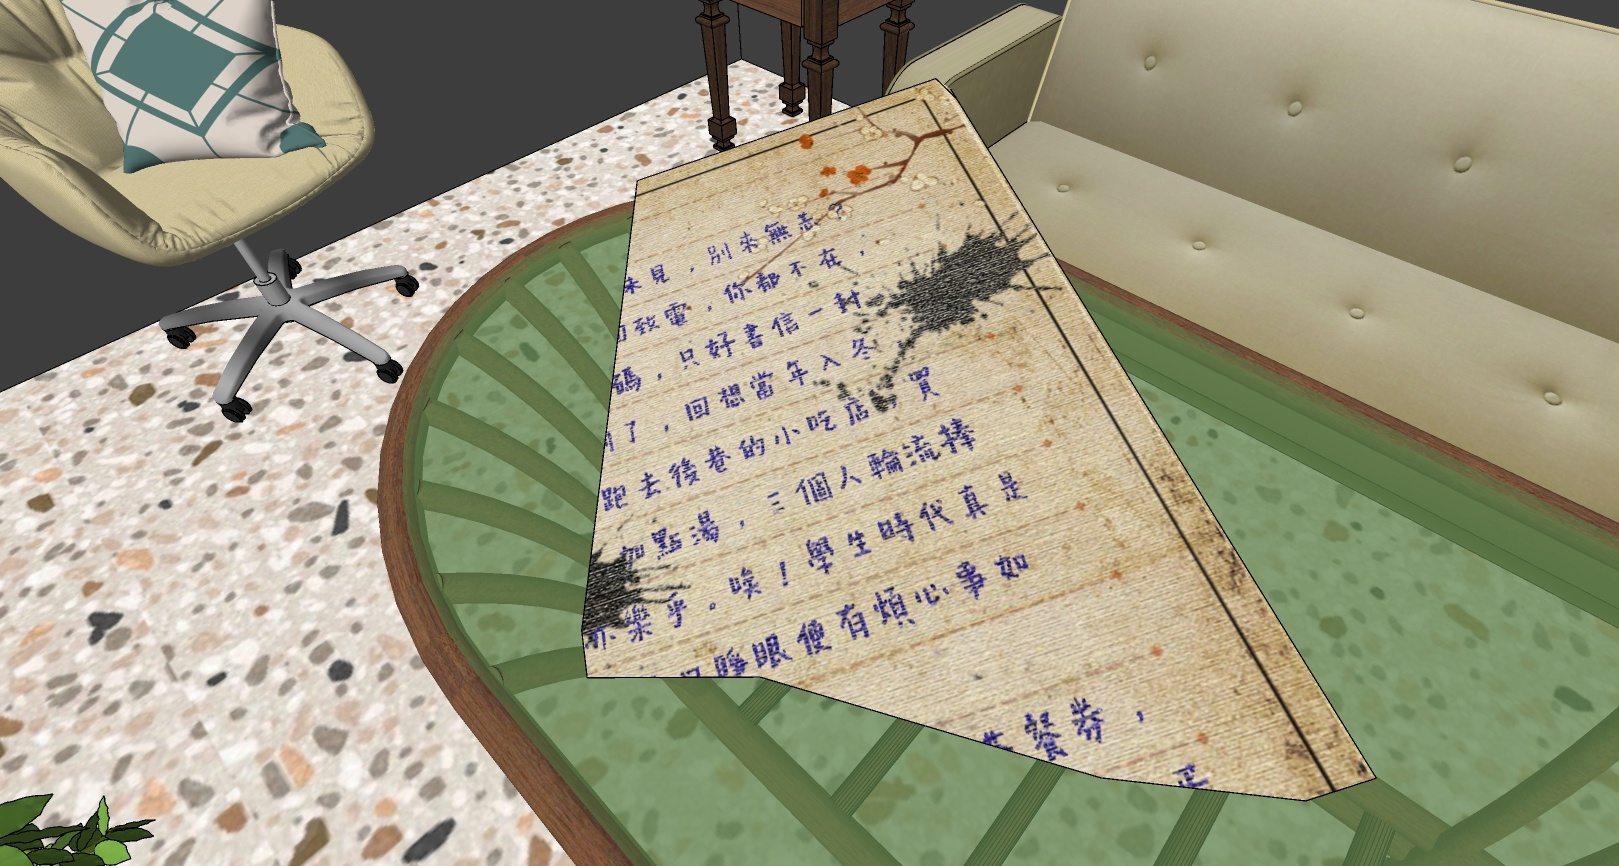 未見，別來無恙？
致電，你都不在，
碼，只好書信一封
了，回想當年入冬
跑去後巷的小吃店，買
加點湯，三個人輪流捧
亦樂乎。唉！學生時代真是
睡眠便有煩心事如
餐券，